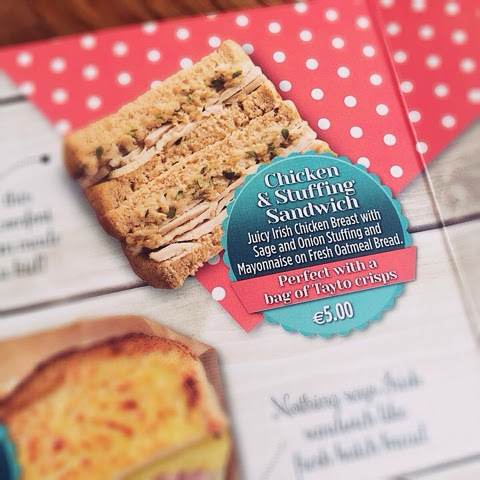 Chicken
& Stuffing
Sandwich
Juicy Irish Chicken Breast with
Sage and Onion Stuffing and
Mayonnaise on Fresh Oatmeal Bread.
Perfect with a
bag of Tayto crisps
€5.00
Nothing says Irish
sandwich like
fresh batch bread